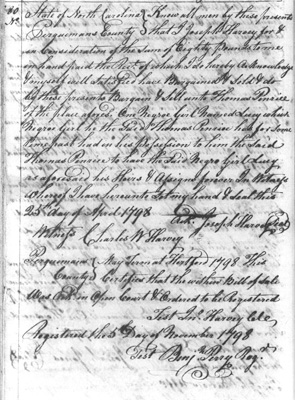 State of North Carolina Know all men by these presents
Perquimans County that I Joseph Harvey for &
in Consideration of the Sum of Eighty Pounds to me
in hand paid the Rect. of which I do hereby Acknowledge
myself
have Bargained & Sold & do
by these presents Bargain & Sell unto Thomas Penrice
of the place afores. One Negro Girl Named Lucy which
Negro Girl he the Said Thomas Penrice has for Some
time past had in his possession to him the Said
Thomas Penrice to have the Said Negro Girl Lucy
as aforesaid his Heirs & Assigns forever In Witness
whereof I have hereunto Set my hand & Seal this
25 Day of April 1798
Joseph Harvey Seal
Witness Charles W Harvey
Perquimans May Term at Hertford 1798 This
County Certifies that the within Bill of Sale
was in Open Court & Ordered to be Registered
Test Jno. Harvey
Registered the 5th Day of November 1798
Test Benj Perry Regr